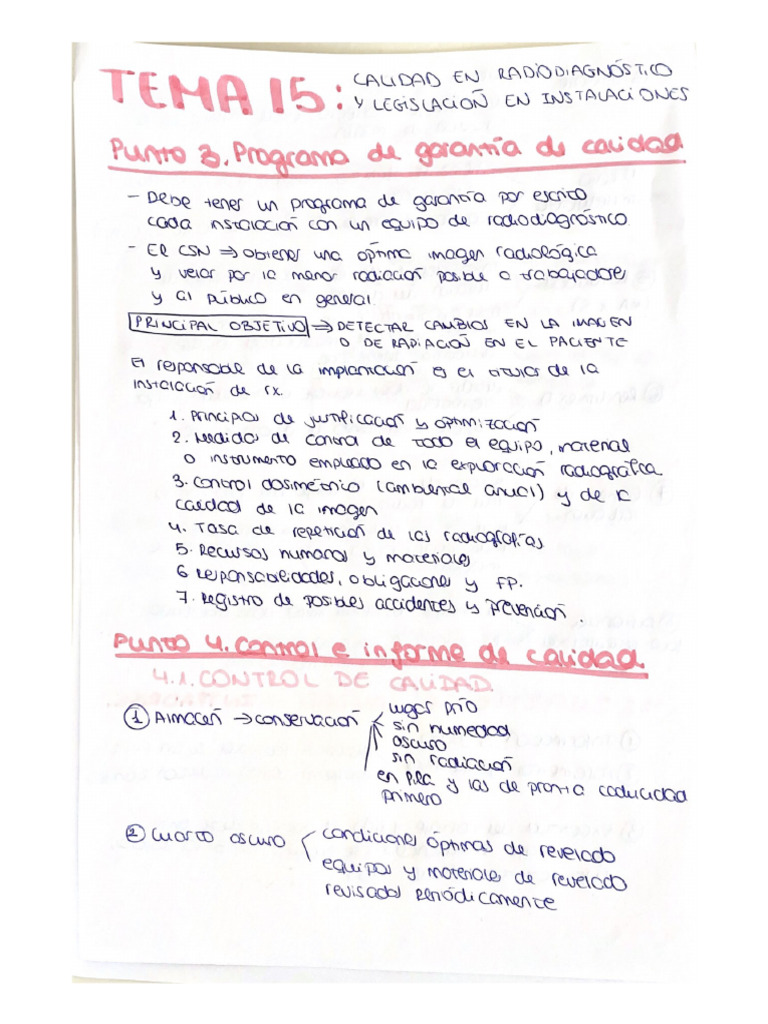 TEMA 15: CALIDAD EN RADIODIAGNÓSTICO
Y LEGISLACIÓN EN INSTALACIONES
Punto 3. Programa de garantía de calidad.
- Debe tener un programa de garantía por escrito
cada instalación con un equipo de radiodiagnóstico.
- El CSN ⇒ obtener una óptima imagen radiológica
y velar por la menor radiación posible a trabajadores
y al público en general.
PRINCIPAL OBJETIVO ⇒ DETECTAR CAMBIOS EN LA IMAGEN
O DE RADIACIÓN EN EL PACIENTE
El responsable de la implantación es el titular de la
instalación de rx.
1. Principios de justificación y optimización
2. Medida de control de todo el equipo, material
o instrumento empleado en la exploración radiográfica
3. Control dosimétrico (ambiental anual) y de la
calidad de la imagen
4. Tasa de repetición de las radiografías
5. Recursos humanos y materiales
6 Responsabilidades, obligaciones y FP.
7. Registro de posibles accidentes y prevención.
Punto 4. Control e informe de calidad.
4.1. CONTROL DE CALIDAD.
① Almacén → conservación
lugar frío
sin humedad
oscuro
sin radiación
en pila y las de pronta caducidad
primero
② Cuarto oscuro
condiciones óptimas de revelado
equipos y materiales de revelado
revisados periódicamente